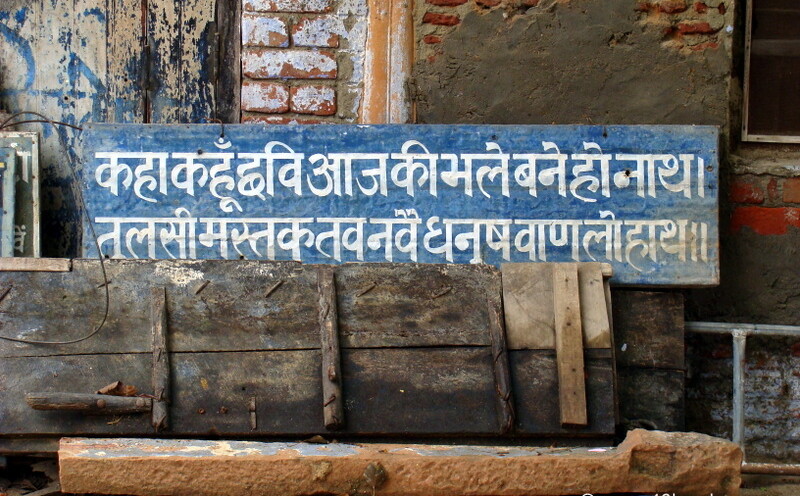 कहा कहूँ छवि आज की भले बने हो नाथ।
तुलसी मस्तक तव नवै धनुष वाण लो हाथ॥